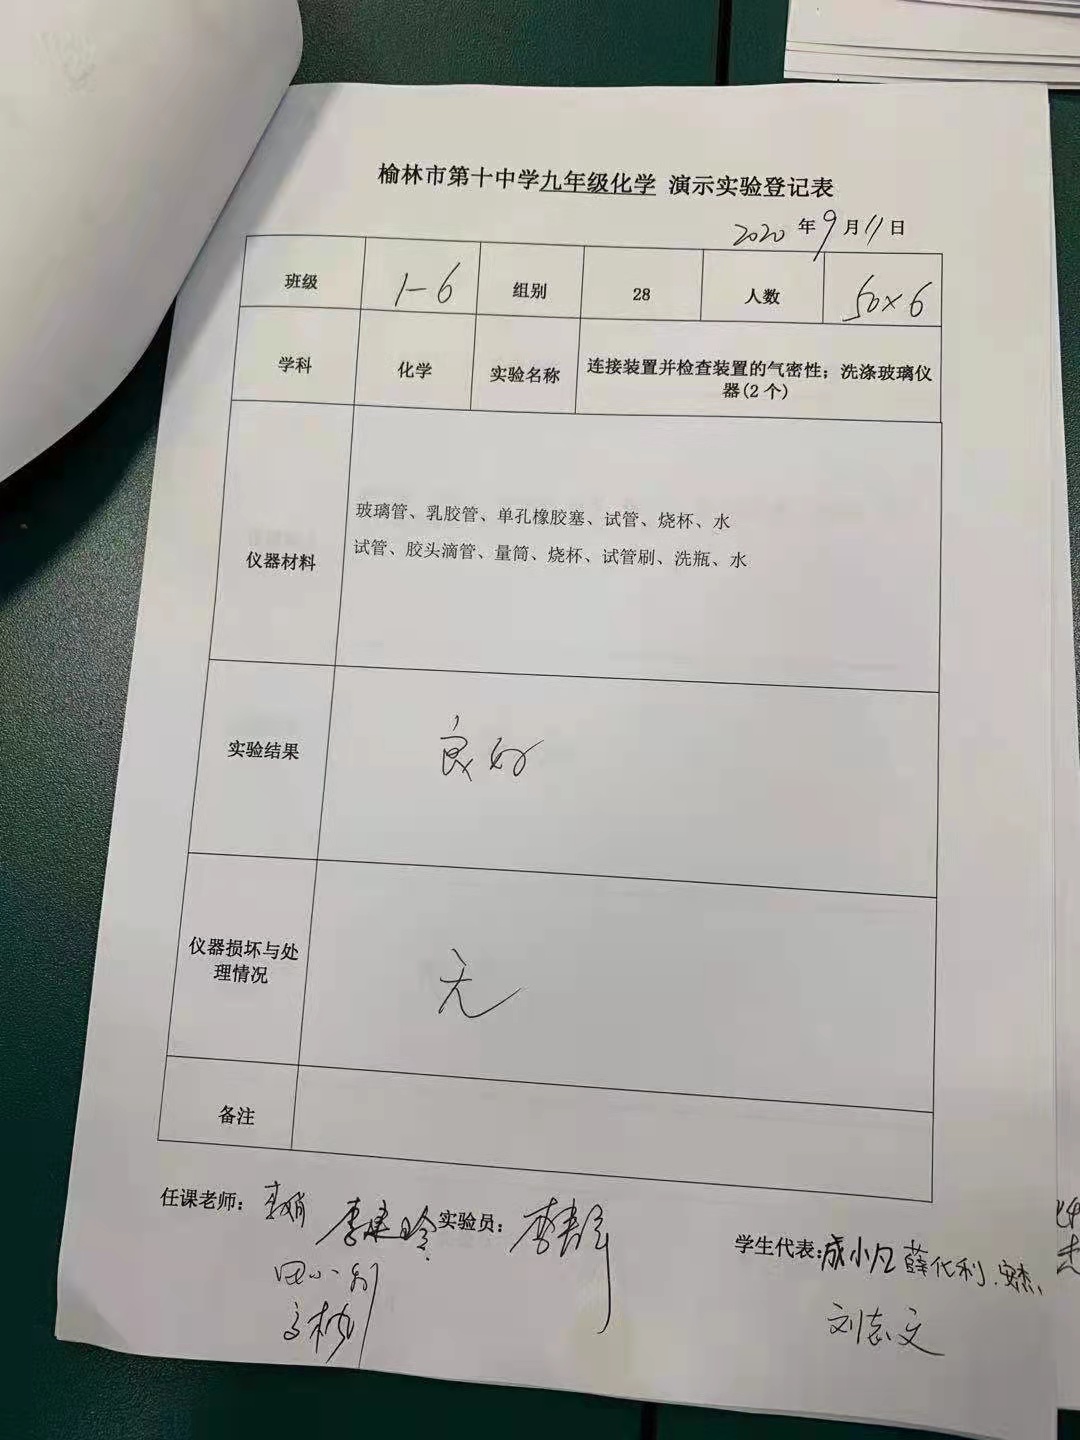 榆林市第十中学九年级化学 演示实验登记表
2020 年 9 月 11 日
班级 1-6 组别 28 人数 50×6
学科 化学 实验名称 连接装置并检查装置的气密性；洗涤玻璃仪
器(2个)
仪器材料
玻璃管、乳胶管、单孔橡胶塞、试管、烧杯、水
试管、胶头滴管、量筒、烧杯、试管刷、洗瓶、水
实验结果 良好
仪器损坏与处
理情况
无
备注
任课老师： 李建玲 实验员： 学生代表: 成小凡 薛化利、安杰、
刘志文